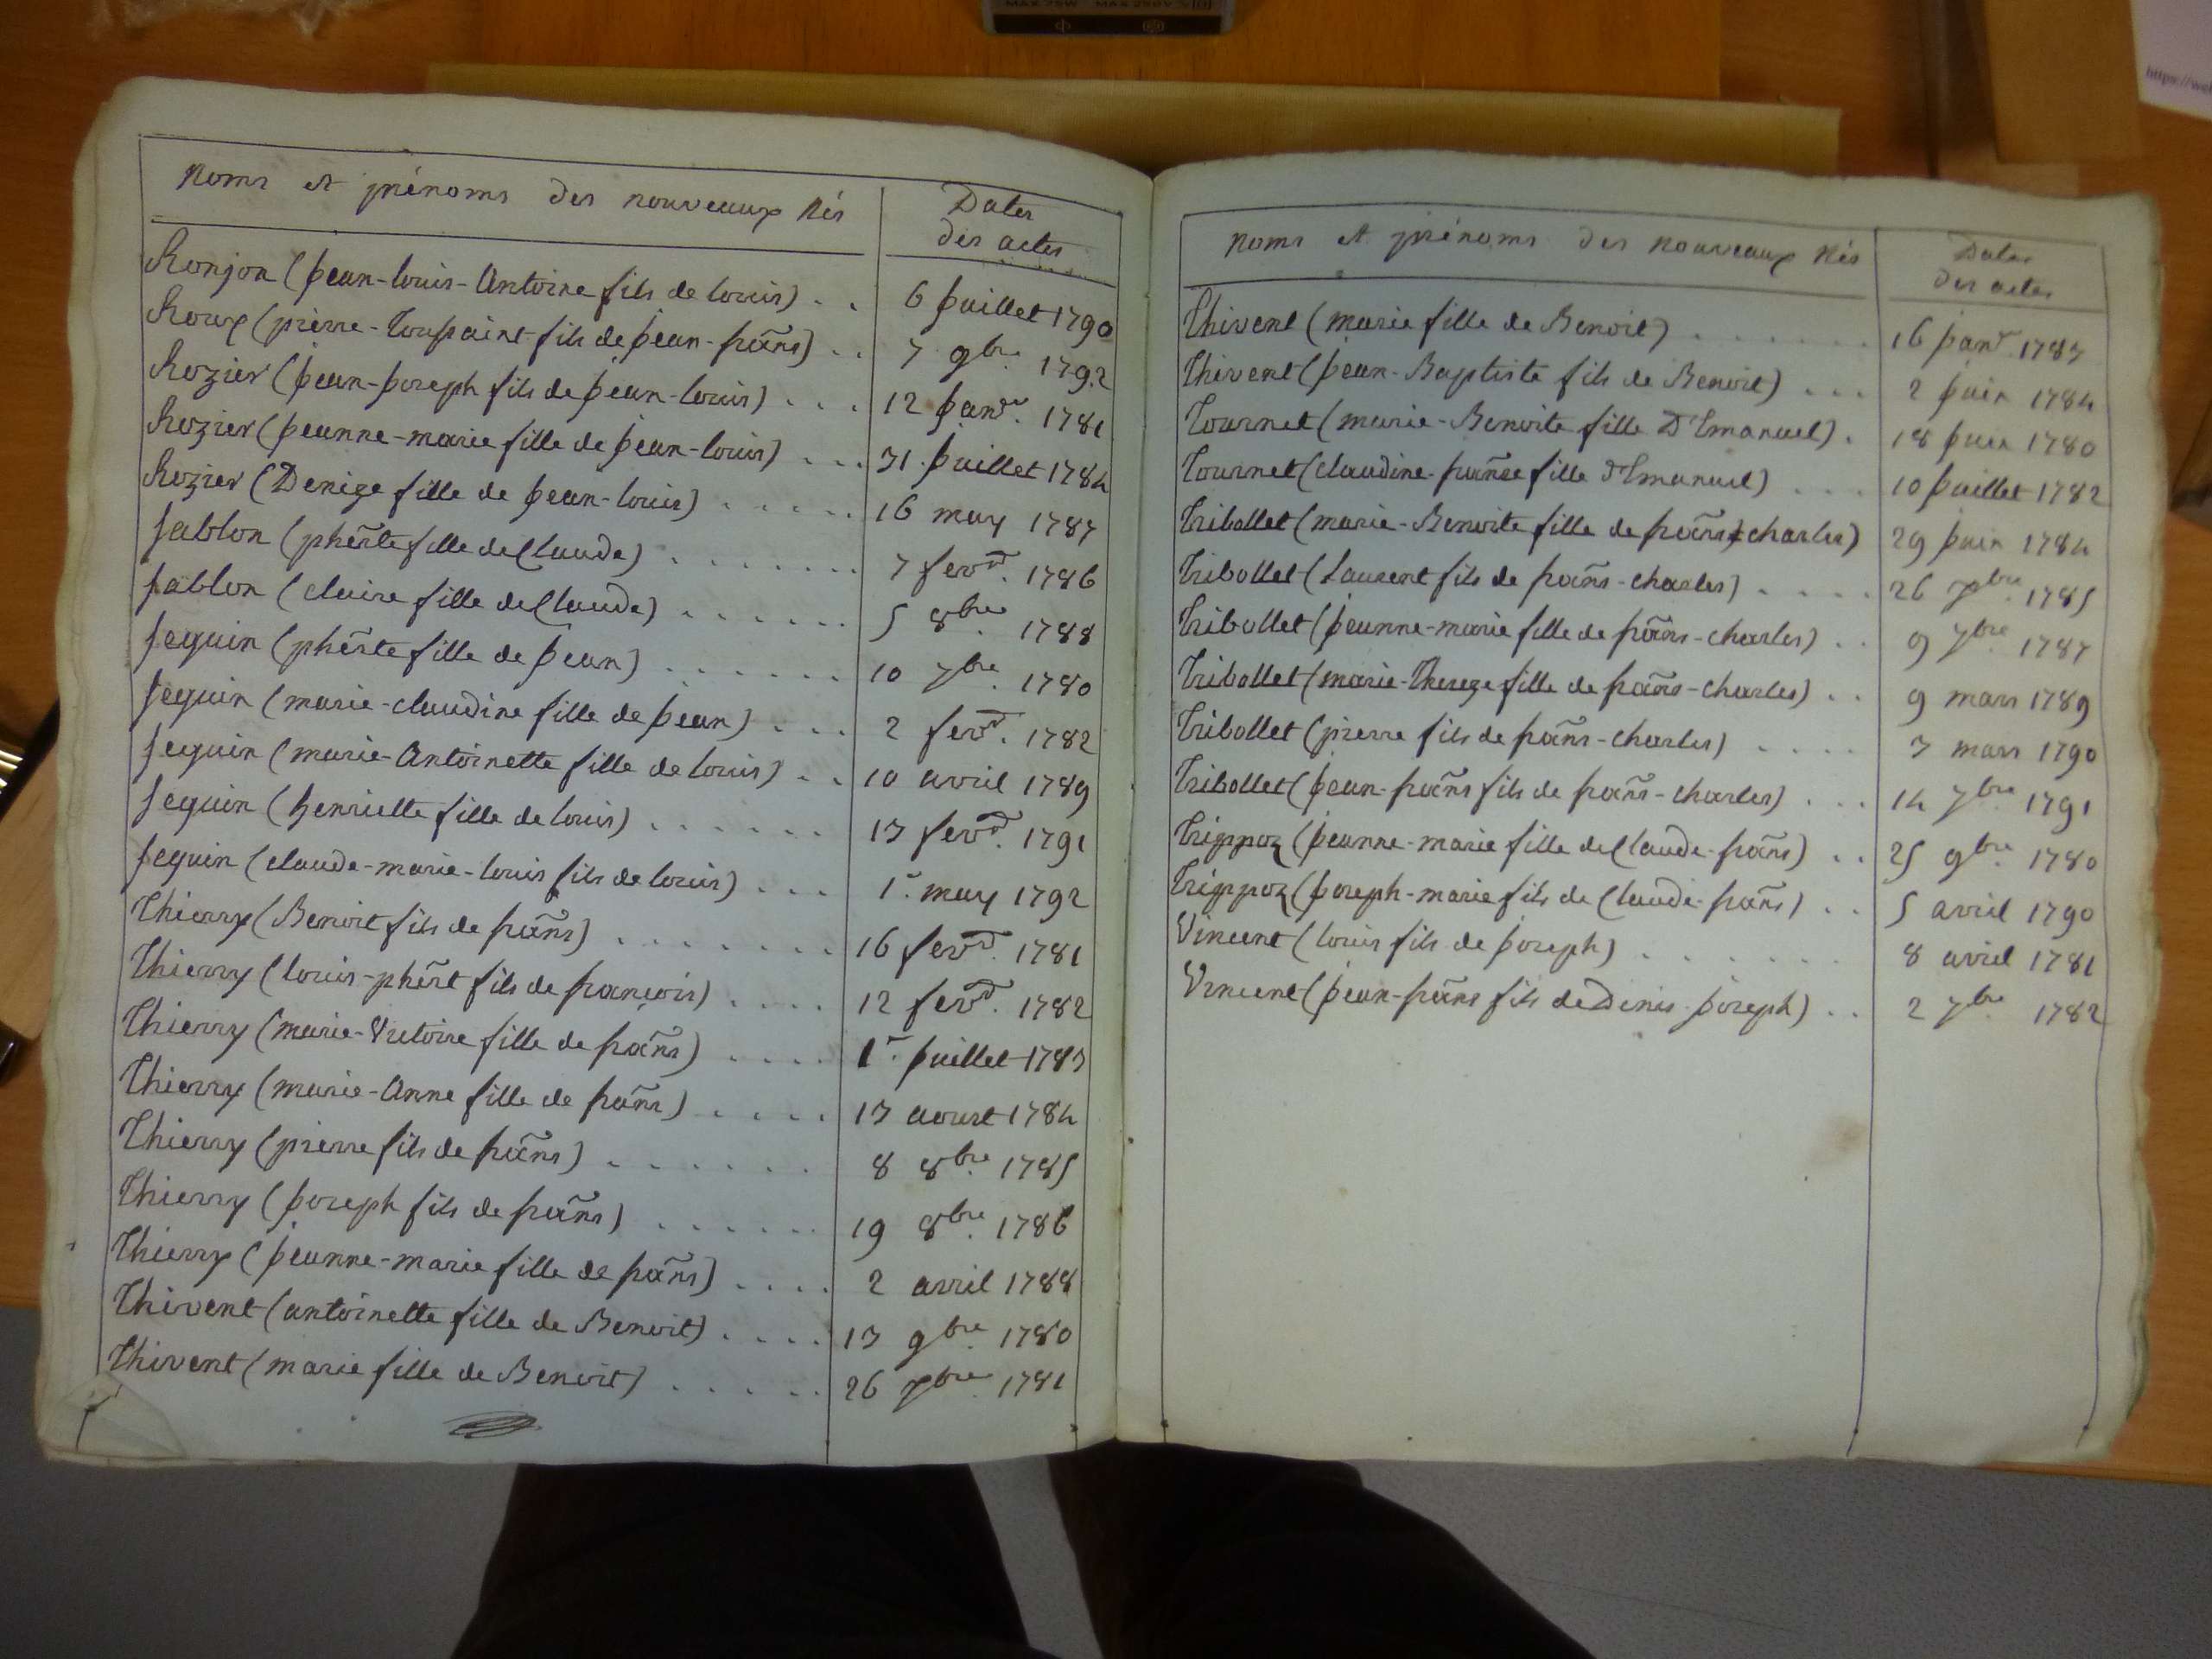 MAX 75W MAX 250V
https://wel
Noms et prénoms des nouveaux Nés
Dates
des actes
Ronjon (Jean-louis-Antoine fils de louis) . . 6 Juillet 1790
Roux (pierre-Toussaint fils de Jean-frañs) . . 7 9bre 1792
Rozier (Jean-Joseph fils de Jean-louis) . . . 12 Janvr. 1781
Rozier (Jeanne-marie fille de Jean-louis) . . . 31 Juillet 1784
Rozier (Denize fille de Jean-louis) . . . . . 16 may 1787
Sablon (phẽrte fille de Claude) . . . . . . . 7 fevr. 1786
Sablon (claire fille de Claude) . . . . . . . 5 8bre 1788
Seguin (phẽrte fille de Jean) . . . . . . . 10 7bre 1780
Seguin (marie-claudine fille de Jean) . . . 2 fevr. 1782
Seguin (marie-Antoinette fille de louis) . . 10 avril 1789
Seguin (henriette fille de louis) . . . . . . 13 fevr. 1791
Seguin (claude-marie-louis fils de louis) . . . 1r may 1792
Thierry (Benoit fils de frañs) . . . . . . . 16 fevr. 1781
Thierry (louis-phẽrt fils de francois) . . . . 12 fevr. 1782
Thierry (marie-Victoire fille de frañs) . . . . 1r. Juillet 1783
Thierry (marie-Anne fille de frañs) . . . . 13 aoust 1784
Thierry (pierre fils de frañs) . . . . . . 8 8bre 1785
Thierry (Joseph fils de frañs) . . . . . . 19 8bre. 1786
Thierry (Jeanne-marie fille de frañs) . . . . 2 avril 1788
Thivent (antoinette fille de Benoit) . . . . 13 9bre 1780
Thivent (marie fille de Benoit) . . . . . 26 xbre 1781
Noms et prénoms des nouveaux Nés
Dates
des actes
Thivent (marie fille de Benoit) . . . . . . . 16 Janvr. 1783
Thivent (Jean-Baptiste fils de Benoit) . . . 2 Juin 1784
Tournet (marie-Benoite fille D'Emanuel) . 18 Juin 1780
Tournet (claudine-franse fille d'Emanuel) . . . . 10 Juillet 1782
Tribollet (marie-Benoite fille de frañs-charles) 29 Juin 1784
Tribollet (Laurent fils de frañs-charles) . . . . . 26 xbre 1785
Tribollet (Jeanne-marie fille de frañs-charles) . . 9 7bre 1787
Tribollet (marie-Thereze fille de frañs-charles) . . 9 mars 1789
Tribollet (pierre fils de frañs-charles) . . . . 3 mars 1790
Tribollet (Jean-frañs fils de frañs-charles) . . . 14 7bre 1791
Trippoz (Jeanne-marie fille de Claude-frañs) . . 25 9bre 1780
Trippoz (Joseph-marie fils de Claude-frañs) . . 5 avril 1790
Vincent (louis fils de Joseph) . . . . . . 8 avril 1781
Vincent (Jean-frañs fils de Denis-Joseph) . . 2 7bre 1782